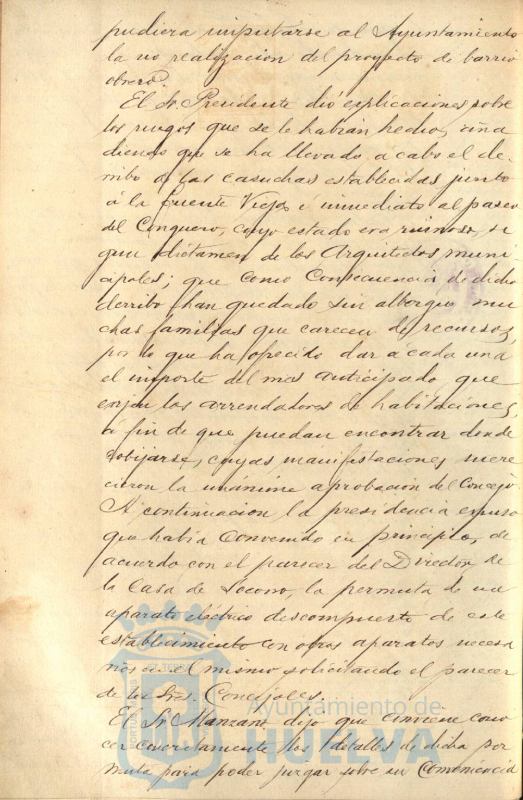 pudiera imputarse al Ayuntamiento
la no realizacion del proyecto de barrio
obrero.
El Sr. Presidente dió explicaciones sobre
los ruegos que se le habian hecho, aña
diendo que se ha llevado a cabo el de-
rribo de las casuchas establecidas junto
á la Fuente Vieja é inmediato al paseo
del Conquero, cuyo estado era ruinoso, se
gun dictamen de los Arquitectos muni
cipales; que como consecuencia de dicho
derribo han quedado sin albergue mu
chas familias que carecen de recursos,
por lo que ha ofrecido dar á cada una
el importe del mes anticipado que
exijen los arrendadores de habitaciones,
á fin de que puedan encontrar donde
cobijarse, cuyas manifestaciones mere
cieron la unánime aprobacion del Concejo.
A continuacion la presidencia expuso
que habia convenido en principio, de
acuerdo con el parecer del Director de
la Casa de Socorro, la permuta de un
aparato eléctrico descompuesto de este
establecimiento con otros aparatos necesa
rios en el mismo solicitando el parecer
de los Sres. Concejales.
El Sr. Manzano dijo que conviene cono
cer concretamente los detalles de dicha per
muta para poder juzgar sobre su conveniencia
Ayuntamiento de
HUELVA